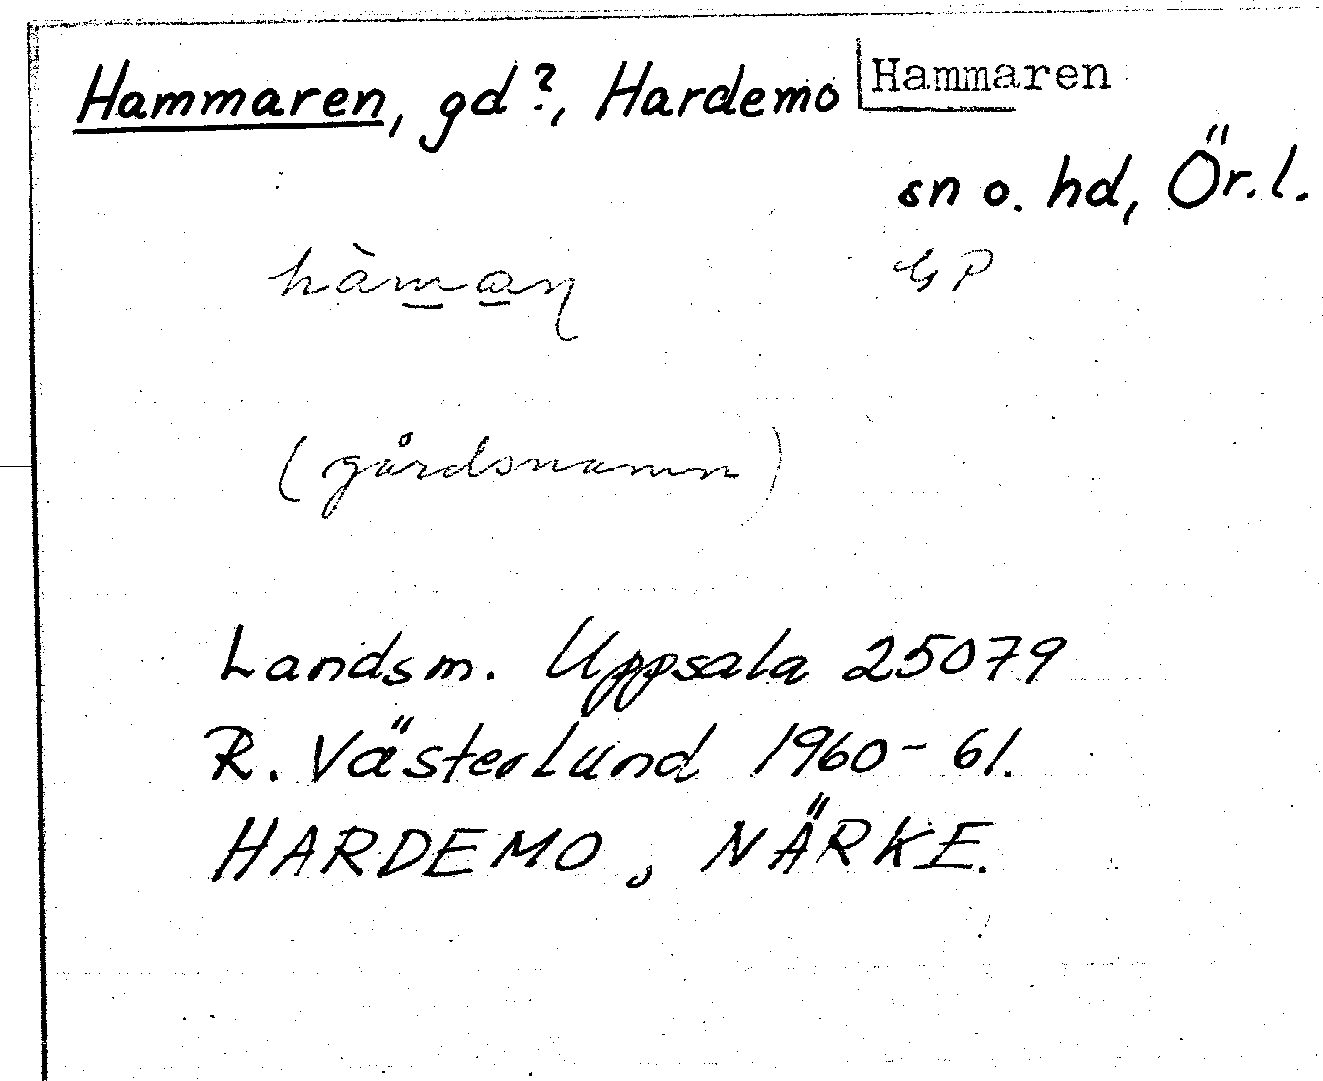 Hammaren, gd?, Hardemo Hammaren
sn o. hd, Ör.l.
hàmaꞃ GP
(gårdsnamn)
Landsm. Uppsala 25079
R. Västerlund 1960-61.
HARDEMO, NÄRKE.